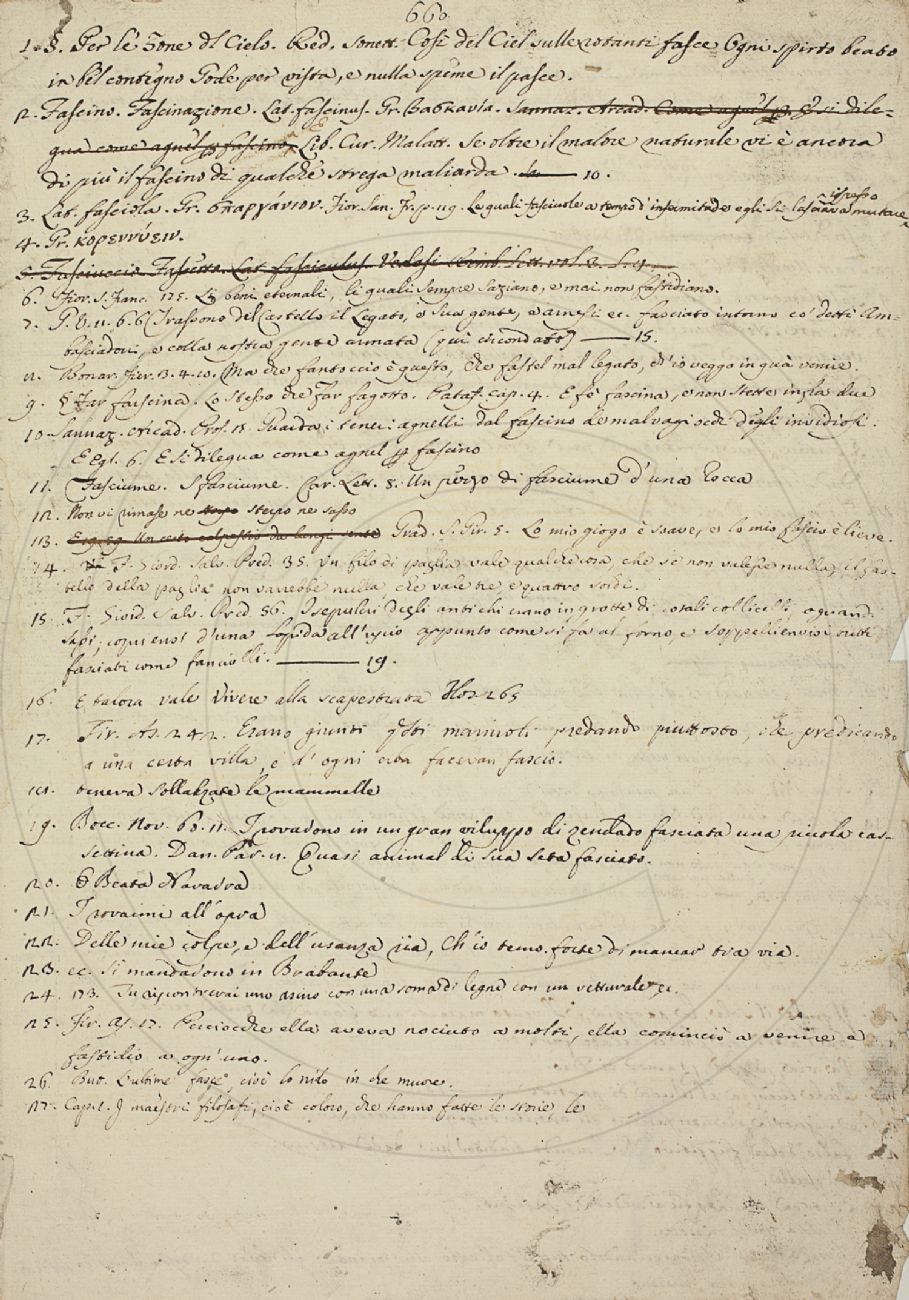 660.
1. §. Per le Zone dl Cielo. Red. Sonett. Così del Ciel sulle rotanti fasce Ogni spirto beato
in bel contegno Gode per vista, e nulla speme il pasce.
2. Fascino. Fascinazione. Lat. fascinus. Gr. Βασκανία. Sannaz. Arcad. Come agnel E si dile-
gua come agnel fascino, Lib. Cur. Malatt. Se oltre il malore naturale vi è ancora
di più il fascino di qualche strega maliarda. 10.
3. Lat. fasciola. Gr. σπαργάνιον. Fior. San. Fr. p. 119. Le quali fasciuole a tempo d'infermitade egli si lasciava spesso mutare.
4. Gr. κορεννύειν.
5. Fasciuccio Lat. fasciculus. Lett. vol. 3. L. 4.
6. Fior. S. Franc. 175. Li beni eternali, li quali sempre saziano, e mai non fastidiano.
7. G. V. 11. 6. 6. Trassono del Castello il Legato, e sua gente, e arnesi ec. fasciato intorno co' detti Am-
basciadori, e colla nostra gente armata (qui circondato) 15.
8. Bonar. Fier. 3. 4. 10. Ma che fantoccio è questo, Che fastel mal legato, ch'io veggo in quà venire.
9. § Far fascina. Lo stesso che Far fagotto. Pataff. cap. 4. E fe' fascina, e non stette infra due
10. Sannaz. Arcad. Pros. Guarda i teneri agnelli dal fascino de malvagi occhi degli invidiosi.
E Egl. 6. E si dilegua come agnel fascino
11. Fasciume. Sfasciume. Car. Lett. 8. Un pezzo di fasciume d'una rocca
12. Non vi rimase ne sterpo ne sasso
13. Un certo calpestio da lungi Grad. S. Gir. 5. Lo mio giogo è soave, e lo mio fascio è lieve.
14. F. Giord. Salv. Pred. 35. Un filo di paglia vale qualche cosa, che se non valesse nulla, il fas-
tello della paglia non varrebbe nulla, che vale tre, e quattro soldi.
15. F. Giord. Salv. Pred. 56. I sepulcri degli antichi erano in grotte di cotali collicelli
d'una lapida all'uscio appunto come si fa al forno, e soppellienvisi tutti
fasciati come fanciulli. 19.
16. E talora vale Vivere alla scapestrata 265
17. Fir. As. 242. Erano giunti questi marivoli predando piuttosto, che predicando
a una certa villa, e d' ogni erba facevan fascio.
18. teneva sollalzate le mammelle
19. Bocc. Nov. 60. 11. Trovarono in un gran viluppo di zendado fasciata una picola cas-
settina. Dan. Par. 8. Quasi animal di sua seta fasciato.
20. Beata
21. Trovaimi all'opra
22. Delle mie colpe, e dell'usanza ria, Ch'io temo forte di mancar tra via.
23. ec. Si mandarono in Brabante
24. 173. Tu riscontrerai uno asino con una soma di legne con un vetturale ec.
25. Fir. As. 17. Perciocchè ella aveva nociuto a molti, ella cominciò a venire a
fastidio a ogn'uno.
26. But. L'ultime fasce, cioè lo nito in che muore.
27. Cap. 1. I maestri filosafi, cioè coloro, che hanno fatte le storie, le